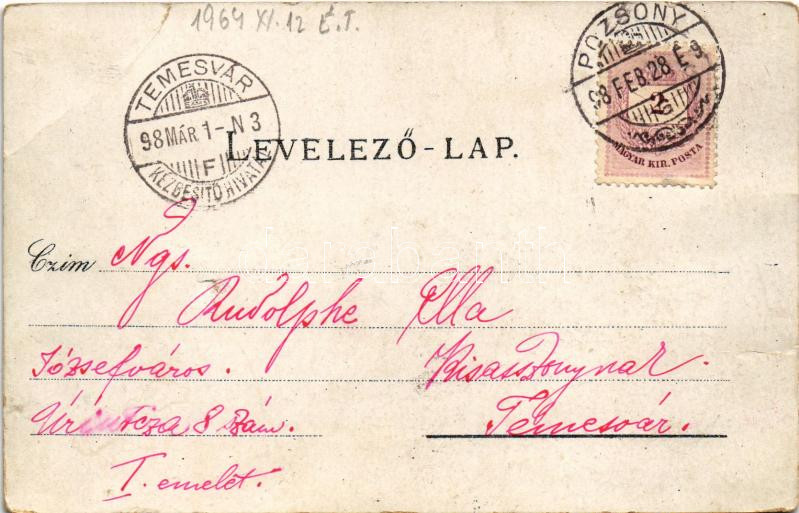 1964 XI. 12 É.T.
POZSONY
98 FEB. 28 É 9
2
MAGYAR KIR. POSTA
TEMESVÁR
98 MÁR 1 - N 3
F
KÉZBESITŐ HIVATAL
LEVELEZŐ-LAP.
Czim Ngs.
Rudolphe Ella
Józsefváros. Kisasszonynak.
Úri utcza 8 szám. Temesvár.
I. emelet.